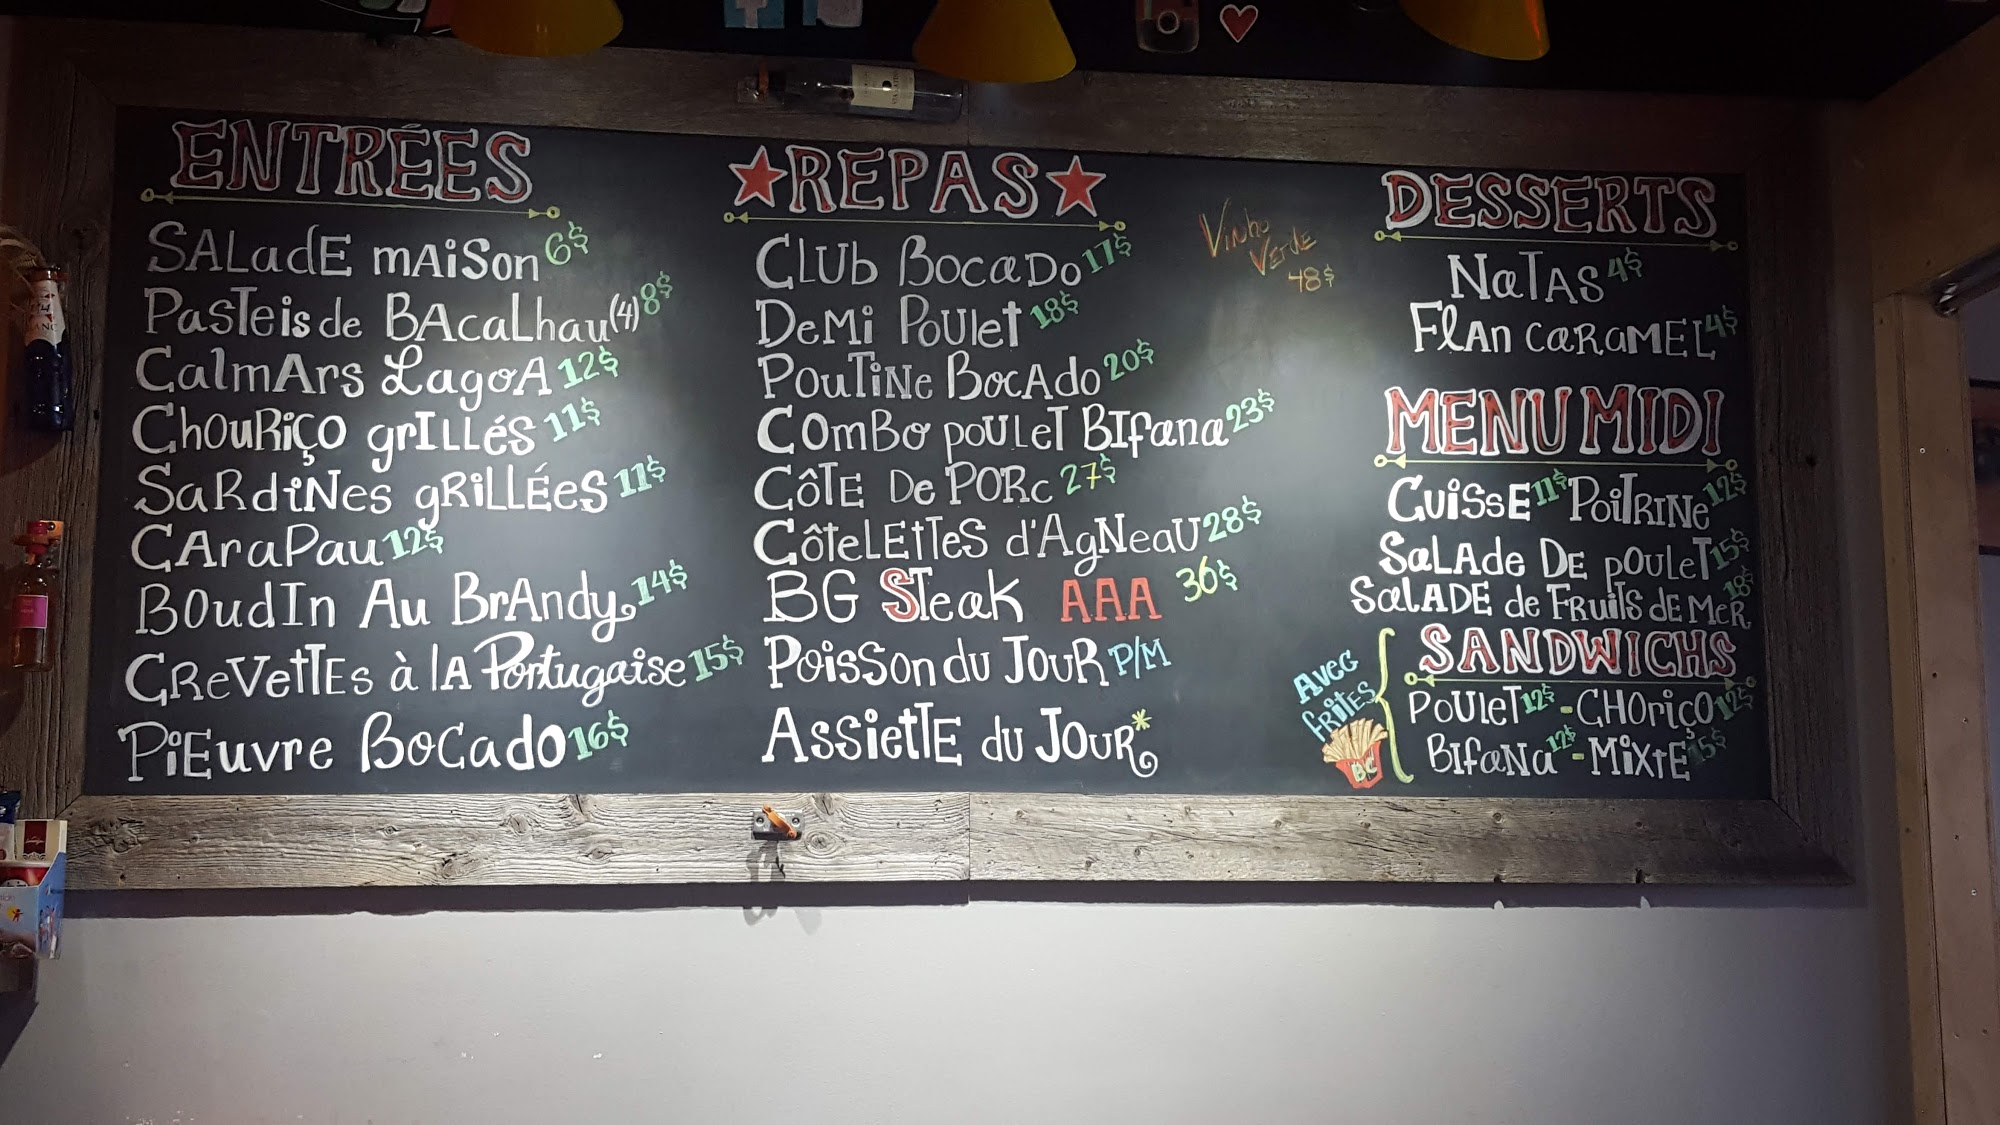 ENTRÉES
SALadE mAiSon 6$
PasTeis de BAcaLhau (4) 8$
CalmArs LagoA 12$
ChouRiço grILLés 11$
SaRdiNes gRiLLÉes 11$
CAraPau 12$
BOudIn Au BrAndy 14$
CReVettEs à lA Portugaise 15$
PiEuvre BoCado 16$
REPAS
CLUb BocaDo 17$
DeMi PoULet 18$
PouTiNe BocAdo 20$
COmBo poULeT BIfana 23$
CôTE De PORc 27$
CôteLEtTeS d'AgNeaU 28$
BG STeak AAA 36$
PoisSon du JouR P/M
AssiettE du JouR*
Vinho
Verde
48$
DESSERTS
NaTAS 4$
FlAn caRaMEL 4$
MENU MIDI
CuisSE 11$ PoiTRiNe 12$
SaLAde DE pouLeT 15$
SaLADE de FRuiTs dE MeR 18$
SANDWICHS
Avec
friTES
BC
POULET 12$ - CHOriÇo 12$
BIfaNa 12$ - MiXtE 15$